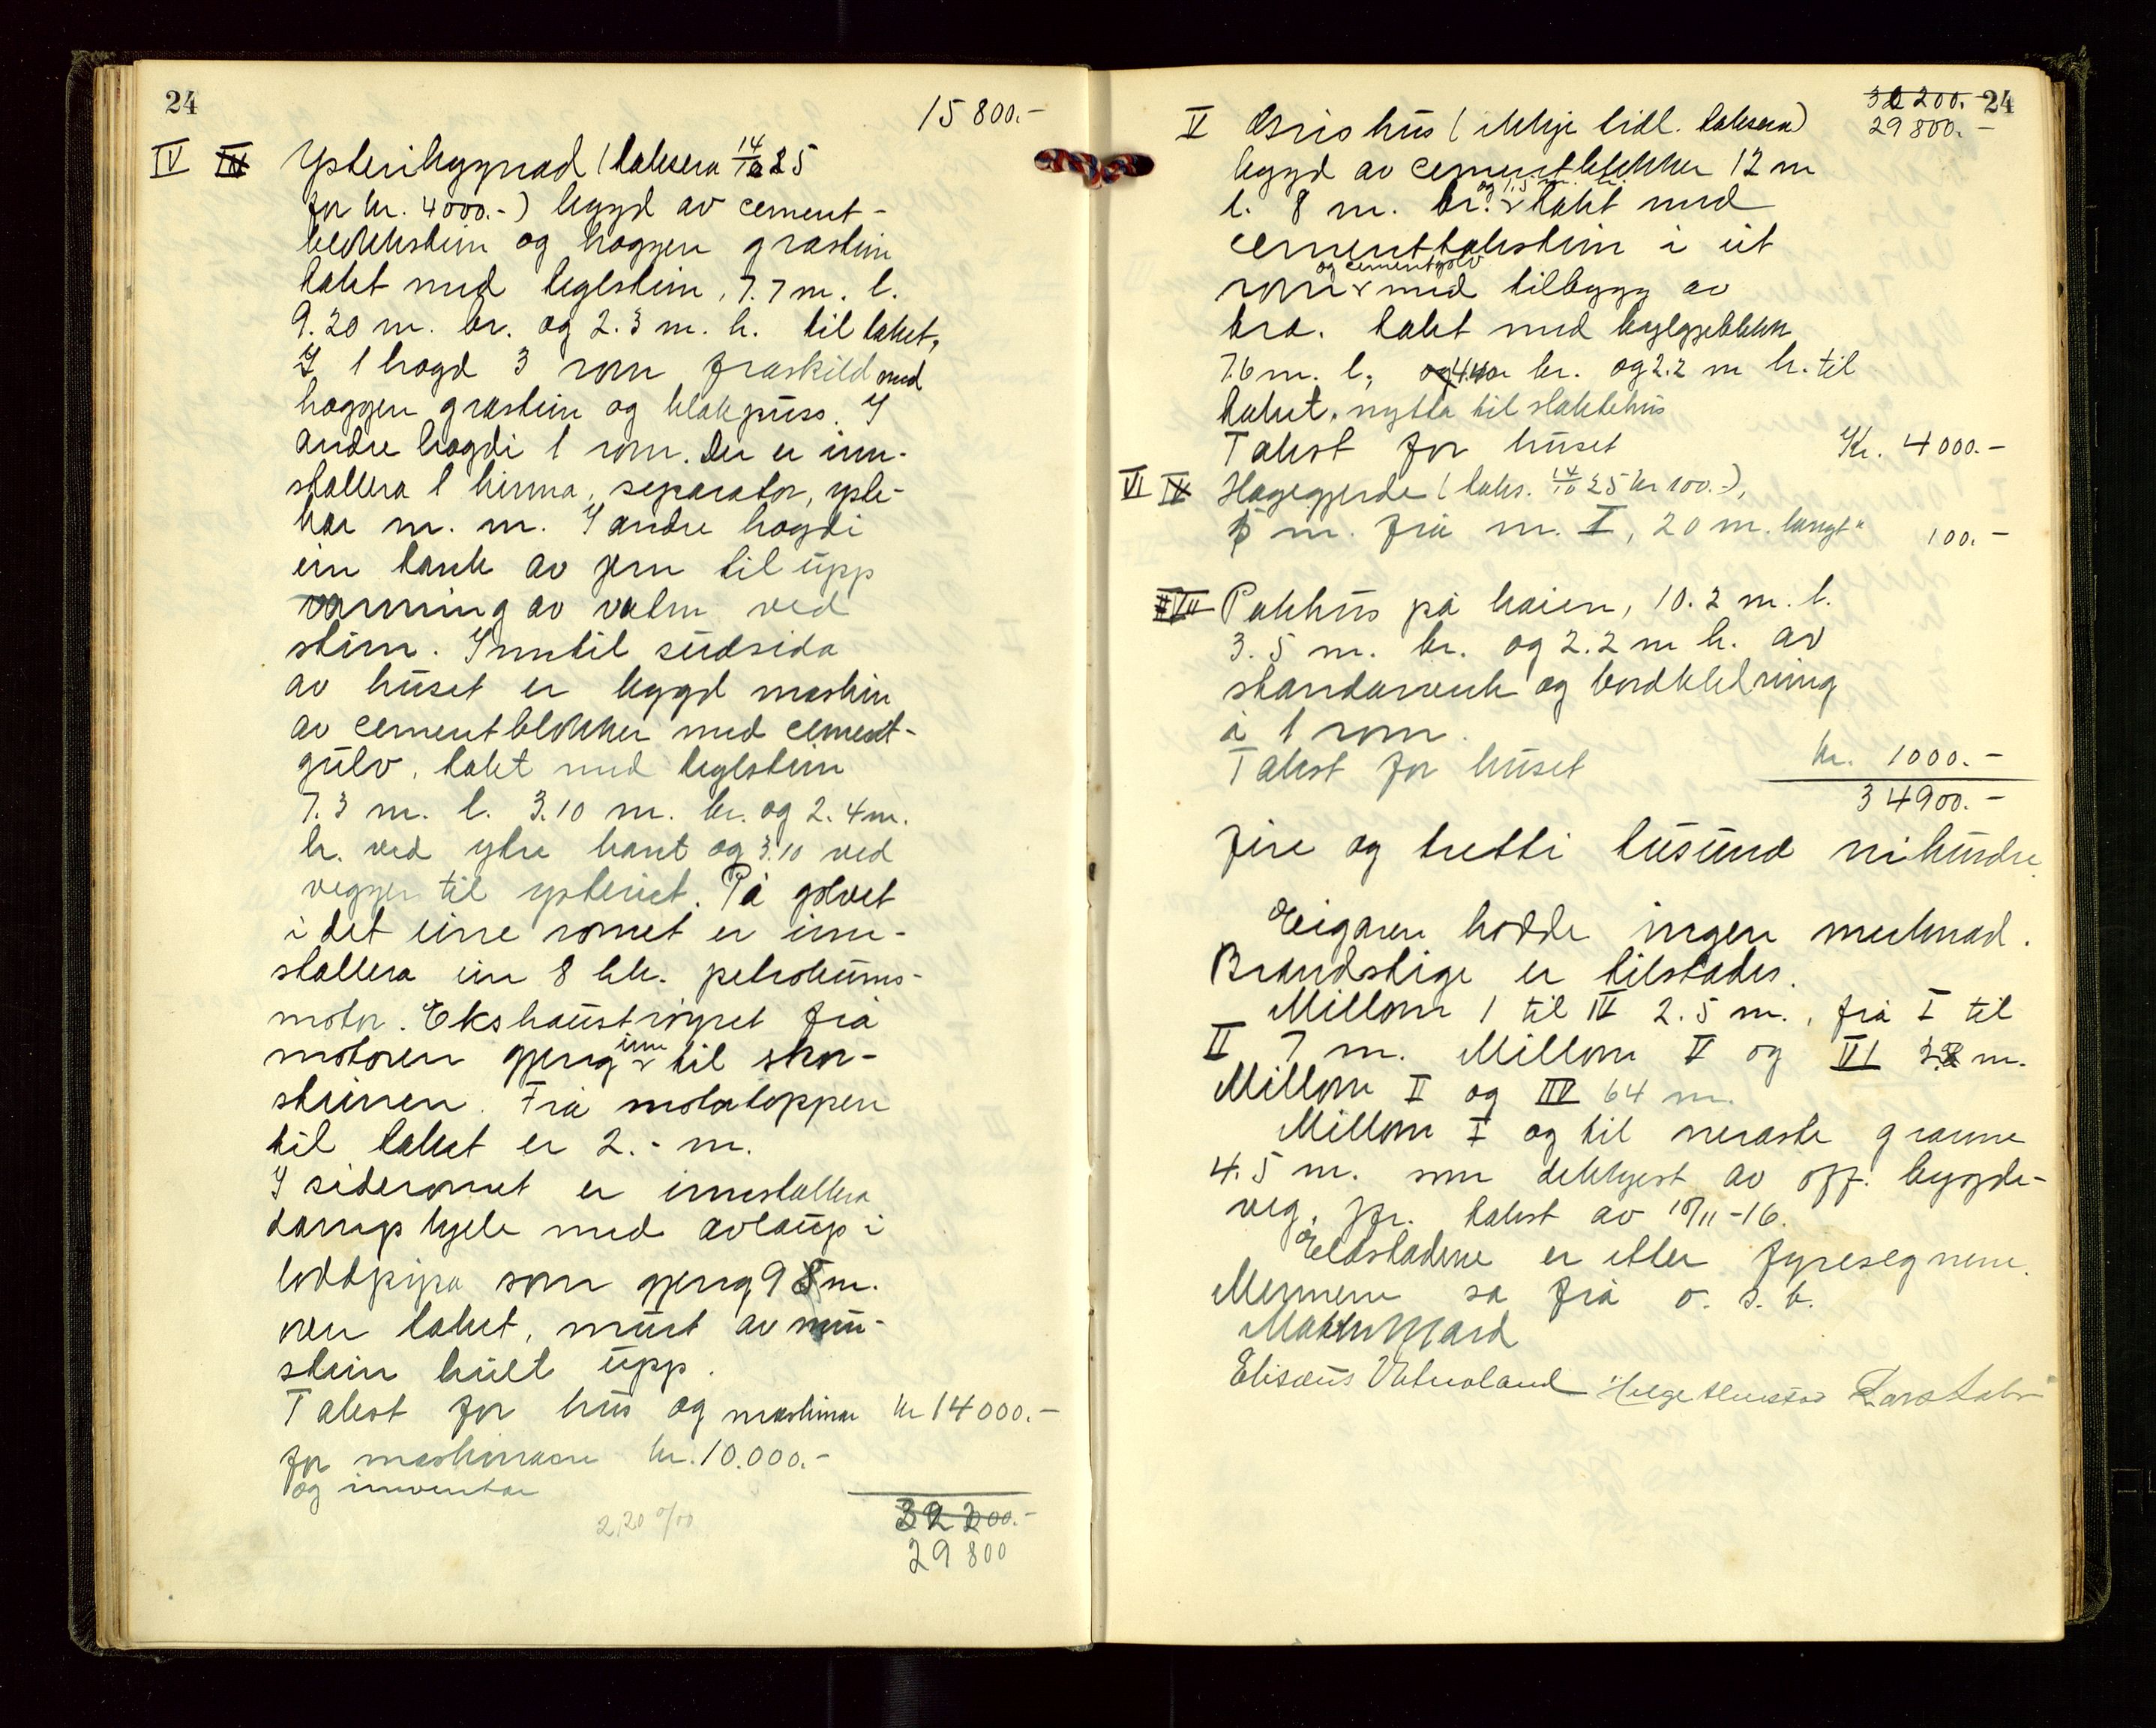 24
15 800.-
IV Ysteribygnad (taksera 14/10 25
for kr. 4000.-) bygd av cement-
blokkstein og hoggen gråstein
takt med teglstein, 7.7 m. l.
9.20 m. br. og 2.3 m. h. til taket,
I 1 høgd 3 rom fråskild med
hoggen gråstein og blakpuss. I
andre høgdi 1 rom. Der er inn-
stallera 1 kinna, separator, yste-
kar m. m. I andre høgdi
ein tank av jern til upp
varming av vatn ved
stim. Inntil sudsida
av huset er bygd maskin
av cementblokker med cement-
gulv, takt med teglstein
7.3 m. l. 3.10 m. br. og 2.4 m.
h. ved ytre kant og 3.10 ved
veggen til ysteriet. På golvet
i det eine romet er inn-
stallera ein 8 hk. petroleums-
motor. Ekshaustrøyret frå
motoren gjeng inn til skor-
steinen. Frå motortoppen
til taket er 2.- m.
I sideromet er innstallera
dampkjele med avlaup i
loddpipa som gjeng 9 8 m.
over taket, murt av mur-
stein heilt upp.
Takst for hus og maskinar kr 14000.-
for maskinane kr. 10.000.-
og inventar
2,20 0/00
32200.-
29800
24
30200.-
29800.-
V Grishus (ikkje tidl. taksera)
bygd av cementblokker 12 m
l. 8 m. br. og 1.5 m. h. takt med
cementtakstein i eit
rom og cementgolv med tilbygg av
tre. takt med bylgjeblekk
7.6 m. l, 4.4 m br. og 2.2 m h. til
taket, nytta til slaktehus
Takst for huset Kr. 4000.-
VI Hagegjerde (taks. 14/10 25 kr 100.-),
5 m. frå nr. I, 20 m. langt 100.-
VII Pakhus på kaien, 10.2 m. l.
3.5 m. br. og 2.2 m h. av
standarverk og bordkledning
á 1 rom.
Takst for huset kr. 1000.-
34900.-
fire og tretti tusund nihundre.
Eigaren hadde ingen merknad.
Brandstige er tilstades.
Millom 1 til IV 2.5 m., frå I til
II 7 m. Millom V og VI m.
Millom II og III 64 m.
Millom I og til næraste granne
4.5 m. som dekkjest av off. bygde-
veg, jfr. takst av 18/11-16.
Eldstadene er etter fyresegnene.
Mennene sa frå o. s. b.
Elisæus Vatnoland Helge Lars